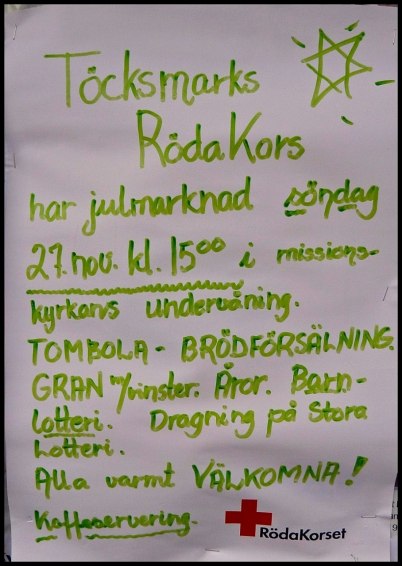 Töcksmarks
RödaKors
har julmarknad söndag
27. nov. kl. 15⁰⁰ i missions-
kyrkans undervåning.
TOMBOLA - BRÖDFÖRSÄLNING.
GRAN m/vinster. Åror. Barn-
lotteri. Dragning på Stora
Lotteri.
Alla varmt VÄLKOMNA!
Kaffeservering.
RödaKorset